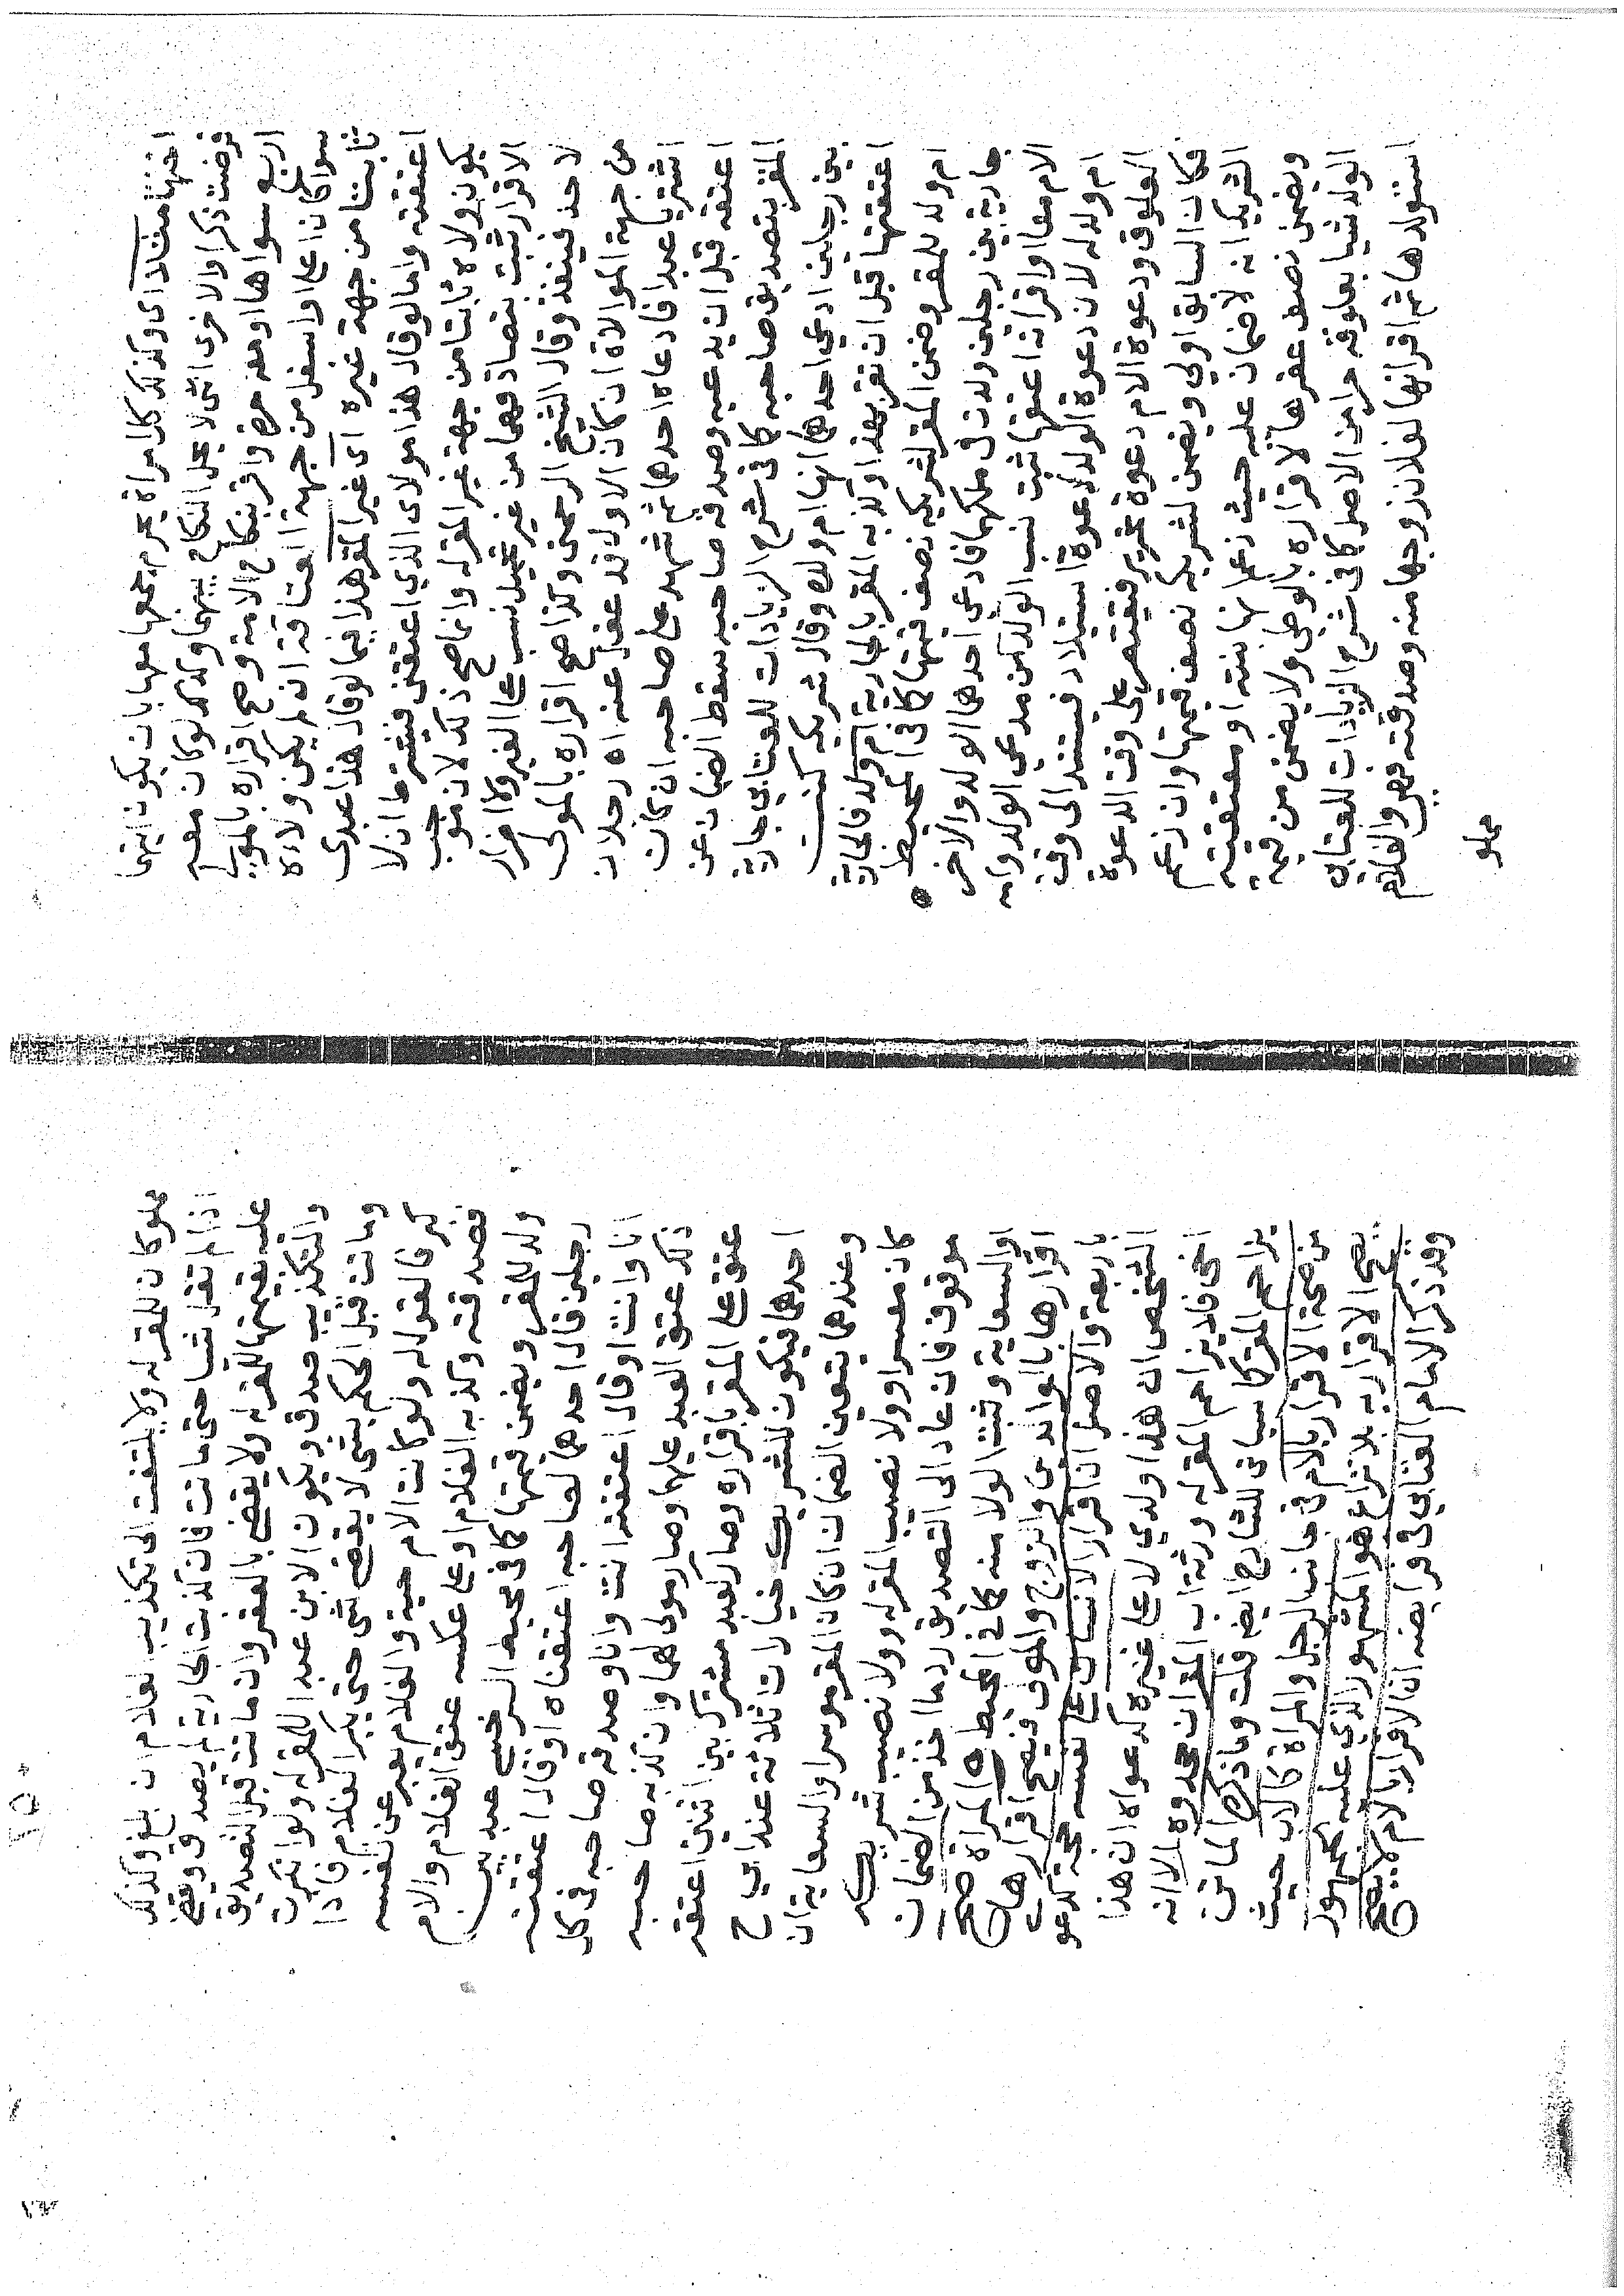 اختها مثلا اى وكذلك كل امراة يحرم جمعها معها بان يكون ايتها
فرضت ذكرا والاخرى انثى لا يحل النكاح بينهما وكذلك لو كان معه
اربع سواها او معه حرة واقر بنكاح الامة وصح اقراره بالمولى
سوا كان اعلى او اسفل من جهة العتاقة ان لم يكن ولاءه
ثابتا من جهة غيره اى غير المقر هذا فيما لو قال هذا عبدى
اعتقته واما لو قال هذا مولاى الذي اعتقنى فيشترط ان لا
يكون ولاه ثابتا من جهة غير المقر له وانما صح ذلك لان موجب
الاقرار ثبت بتصادقهما من غير تحميل نسب على الغير ولا اضرار
لاحد فينفذ وقال الشيخ الرحمتى وكذا صح اقراره بالمولى
من جهة الموالاة ان كان الاول قد عقل عنه اه رجلان
اشتريا عبدا فادعاه احدهما ثم شهد على صاحبه ان كان
اعتقه قبل ان يدعيه وصدقه صاحبه سقط الضمان عن
المقر بتصديق صاحبه كما فى شرح الزيادات للعتابي جارية
بين رجلين ادعي احدهما انها ام ولده وقال شريكه كنت
اعتقتها قبل ان تقر بهذا وكذبه المقر بالجارية ام ولد فالجارية
ام ولد للمقر وضمن المقر لشريكه نصف قيمتها كما فى المحيط
جارية بين رجلين ولدت فى ملكهما فادعى احدهما الولد والاخر
الام معا او اقر انه اعتقها ثبت نسب الولد من مدعي الولد وانه
ام ولد له لان دعوة الولد دعوة استيلاد فيستند الى وقت
العلوق ودعوة الام دعوة تحرير فيقتصر على وقت الدعوة
فكان السابق اولي ويضمن لشريكه نصف قيمتها وان زعم
الشريك انه لا ضمان عليه حيث زعم انها بنته او معتقته
ويضمن نصف عقرها لاقراره بالوطى ولا يضمن من قيمة
الولد شيا بعلوقه حرا من الاصل كما فى شرح الزيادات للعتابى
استولدها ثم اقر انها لفلان زوجها منه وصدقته فهى والغلام
مملو
مملوكان للمقر له ولا يلتفت الى تكذيب الغلام ان بلغ وكذلك
اذا لم تقل شيا حتى ماتت فان كذبت الجارية لم يصدق ويقضى
عليه بقيمتها للمقر له ولا يقضى بالعقر وان ماتت قبل التصديق
والتكذيب صدق ويكون الابن عبد اللمقر له ولو انكرت
وماتت قبل الحكم بشى لا يقضى بشى حتى يكبر الغلام فاذا
كبر فالقول له ولو كانت الام حية والغلام يعبر عن نفسه
فصدقته وكذبه الغلام او على عكسه عتق الغلام والام
ولد للمقر ويضمن قيمتها كما فى محيط السرخسى عبد بين
رجلين قال احدهما لصاحبه اعتقناه او قال اعتقته
انا وانت او قال اعتقته انت وانا وصدقه صاحبه فى كل
ذلك عتق العبد عليهما وصار مولى لهما وان كذبه صاحبه
عتق على المقر باقراره وصار كعبد مشترك بين اثنين اعتقه
احدهما فيكون للشريك خيارات ثلاثة عند ابي ح
وعندهما يتعين الضمان ان كان المقر موسرا والسعاية ان
كان معسرا وولا نصيب المقر له وولا نصيب شريكه
موقوف فان عاد الى التصديق رد ما اخذ من الضمان
او السعاية وثبت الولا منه كما فى المحيط المراة صح
اقرارها بالوالدين والزوج والمولى فيصح اقرارها
باربعة والاصل ان اقرار الانسان على نفسه حجة كدعو
الشخص ان هذا ولدي لا على غيره كدعواه ان هذا
اخى فلا يزاحم المقر له ورثة اب المقر ان جحدوه الا انه
يزاحم المقر كما سياتى للشارح ايضا قلت وما ذكره الماتن
من صحة الاقرار بالام فى جانب الرجل والمراة كالاب حيث
يصح الاقرار به بلا نزاع هو المشهور الذي عليه الجمهور
وقد ذكر الامام العتابي فى فرايضه ان الاقرار بالام لا يصح